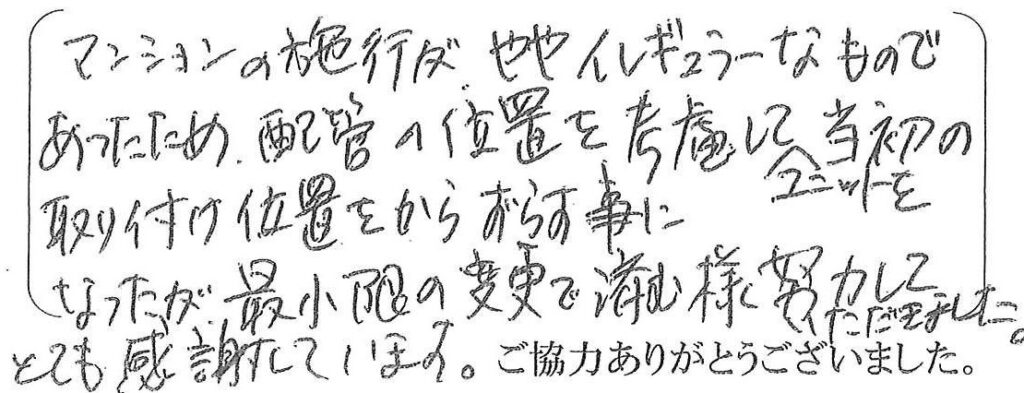 マンションの施行が、ややイレギュラーなもので
あったため、配管の位置を考慮して、ユニットを当初の
取り付け位置をからずらす事に
なったが、最小限の変更で済む様、努力して
いただきました。
とても感謝しています。ご協力ありがとうございました。